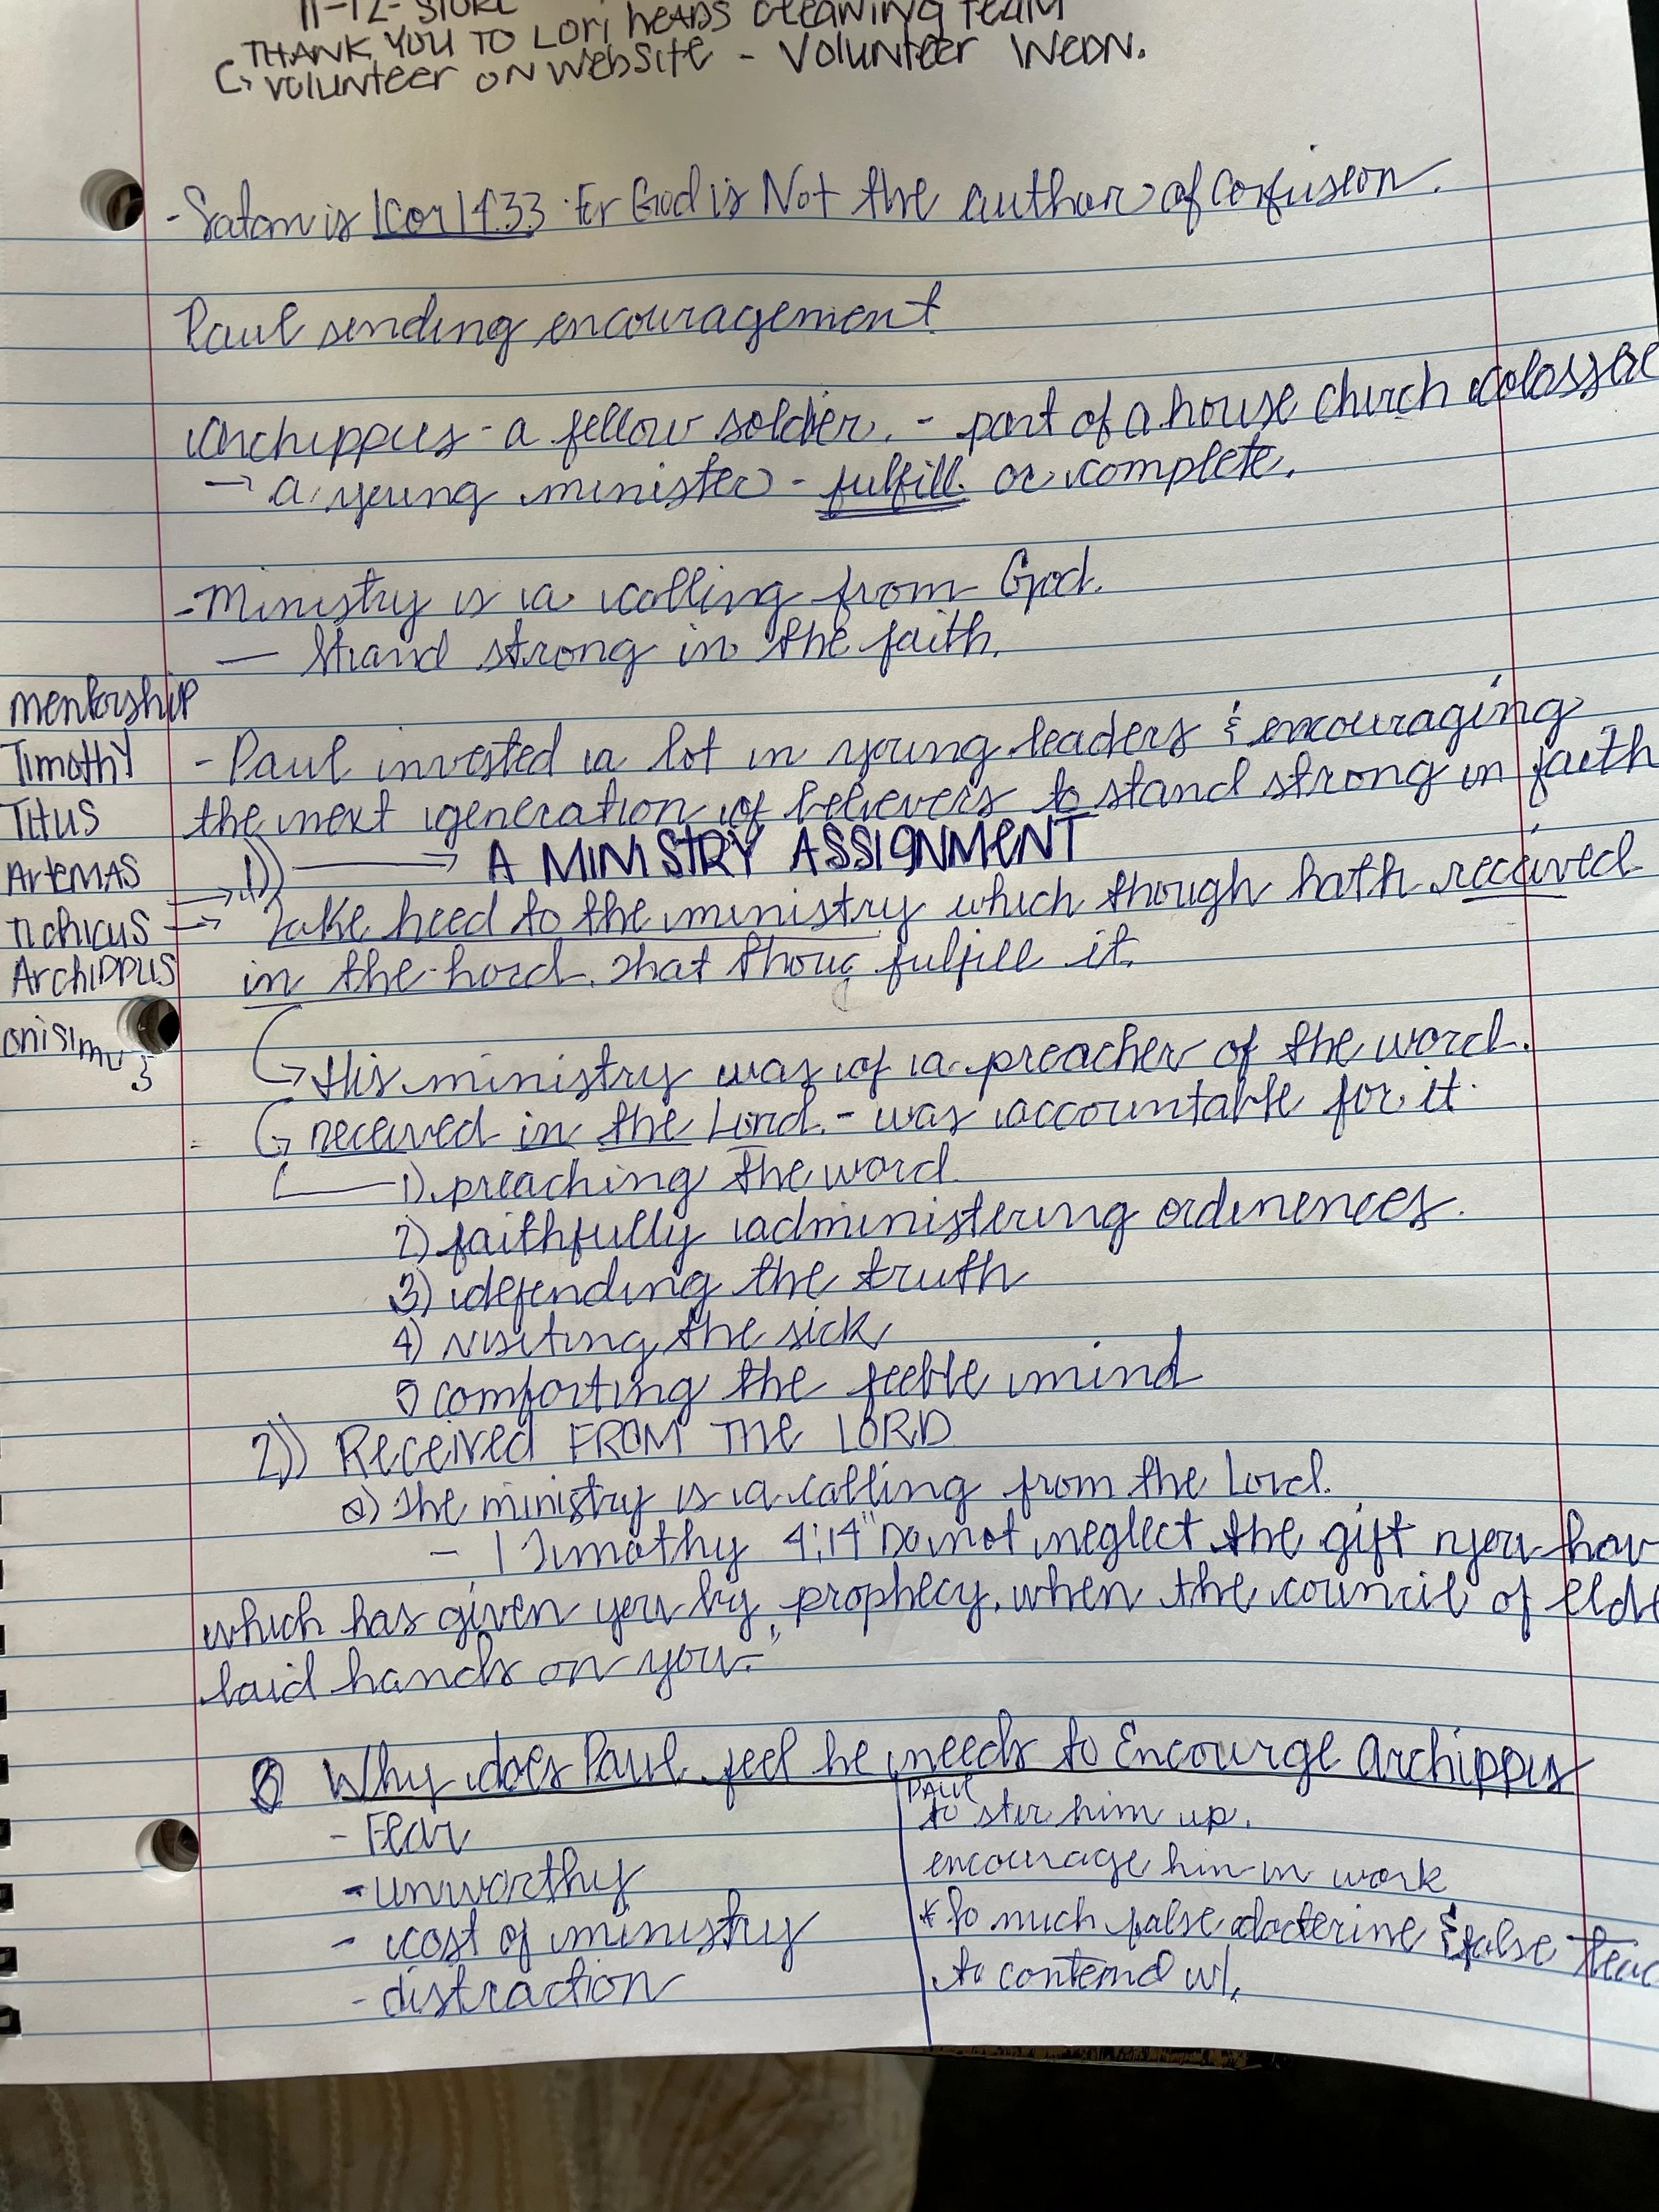 11-12- STORE
THANK YOU TO LORI HEADS CLEANING TEAM
↳ VOLUNTEER ON WEBSITE - VOLUNTEER WEDN.
- Satan is 1Cor 14:33 · For God is Not the author of confusion.
Paul sending encouragement
Archippus - a fellow soldier. - part of a house church colassae
→ a young minister - fulfill or complete.
- Ministry is a calling from God.
— Stand strong in the faith.
mentorship
Timothy - Paul invested a lot in young leaders & encouraging
Titus the next generation of believers to stand strong in faith
1)) → A MINISTRY ASSIGNMENT
Artemas
Tichicus → Take heed to the ministry which though hath received
Archippus in the Lord. That thou fulfill it.
onisimus
↳ His ministry was of a preacher of the word.
↳ received in the Lord. - was accountable for it.
1). preaching the word
2) faithfully administering ordinences.
3) defending the truth
4) visiting the sick
5 comforting the feeble mind
2)) Received FROM THE LORD
a) The ministry is a calling from the Lord.
- 1 Timothy 4:14 "Do not neglect the gift you hav
which has given you by prophecy, when the council of elde
laid hands on you."
Why does Paul feel he needs to Encourge Archippus
- Fear
- unworthy
- cost of ministry
- distraction
PAUL
to stir him up.
encourage him in work
* So much false docterine & false teac
to contend w/.